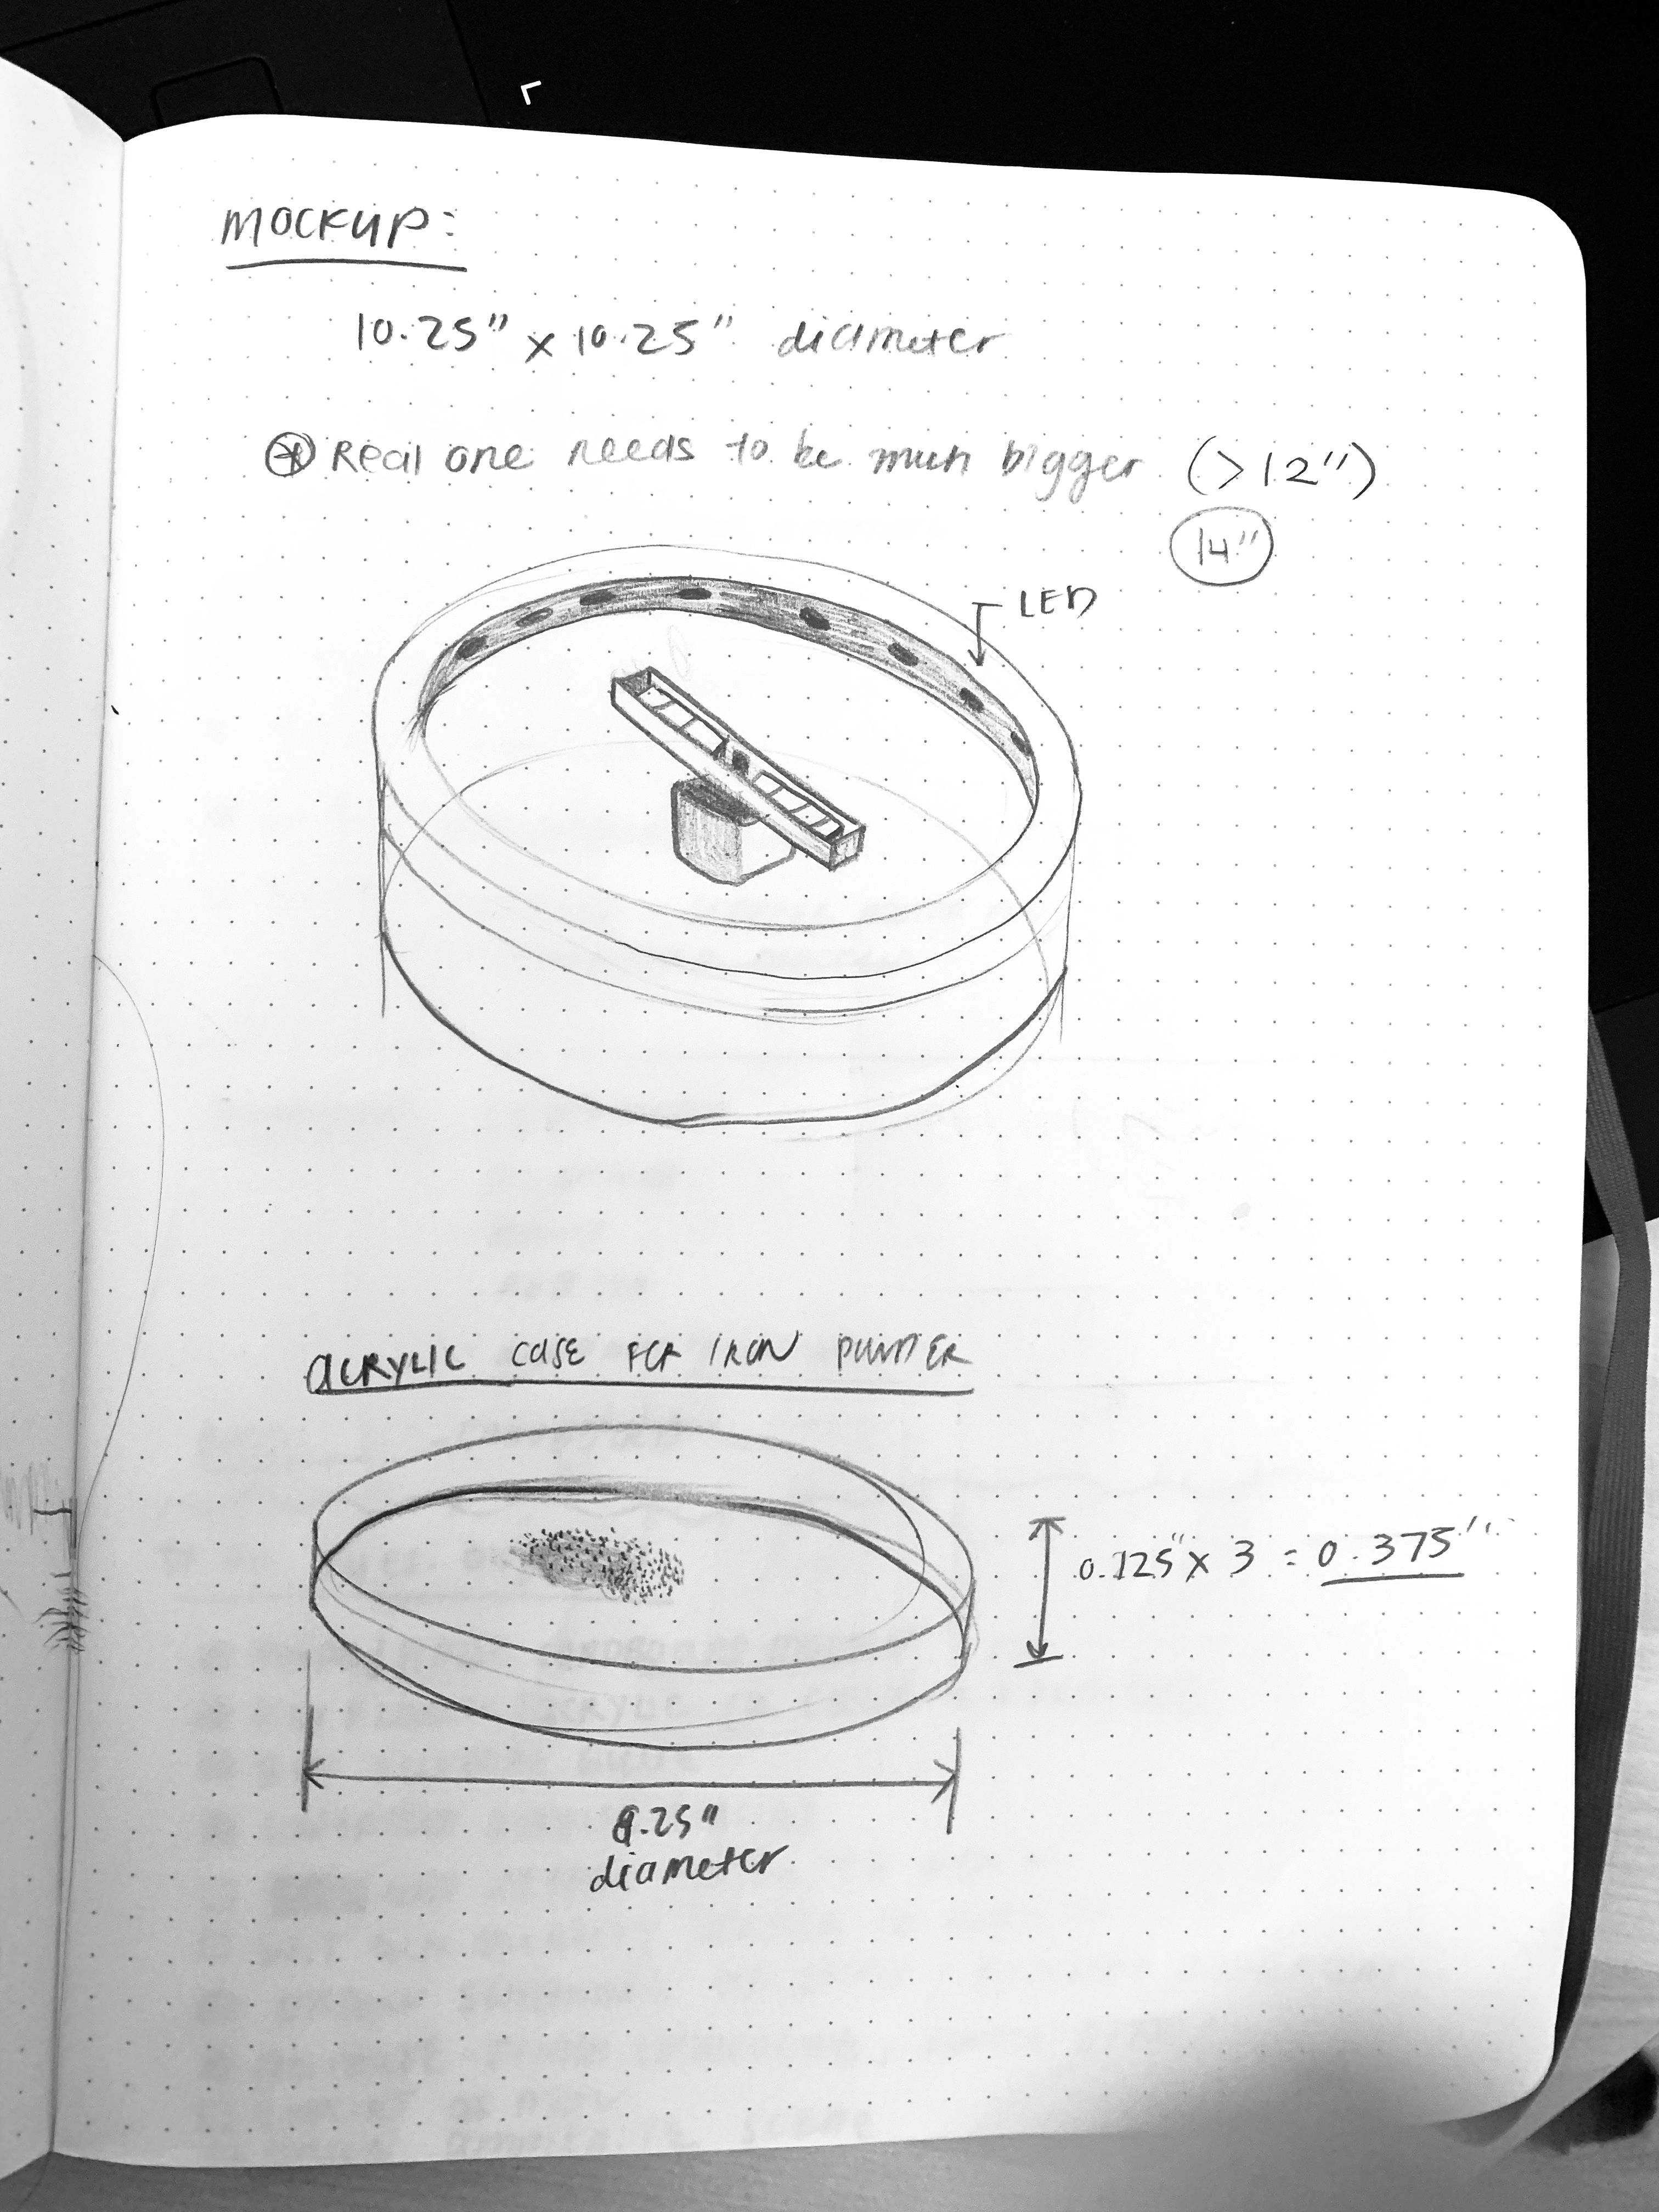 MOCKUP:
10.25" x 10.25" diameter
Real one needs to be much bigger (>12")
14"
LED
ACRYLIC CASE FOR IRON POWDER
0.125" x 3 = 0.375"
diameter